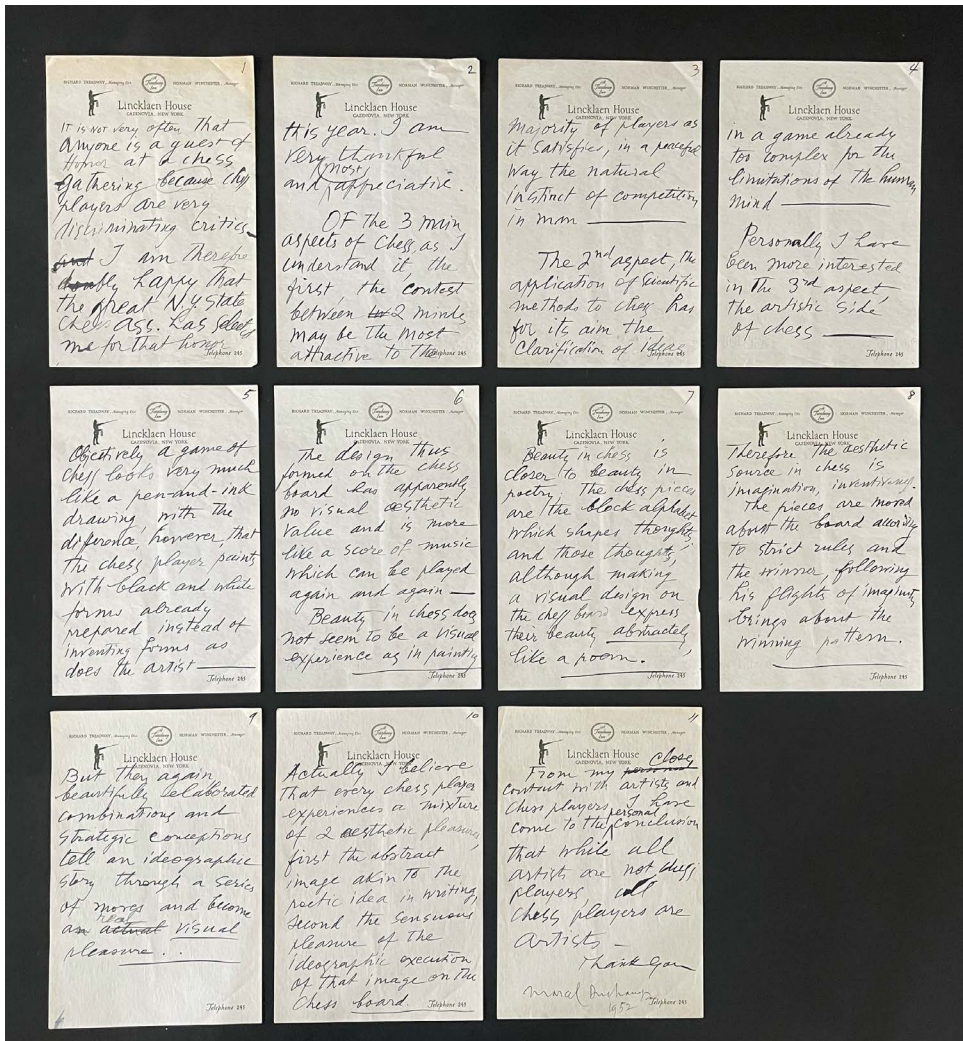 1
RICHARD TREADWAY, Managing Dir.
A Treadway Inn
NORMAN WINCHESTER, Manager
Lincklaen House
CAZENOVIA, NEW YORK
It is not very often that
anyone is a guest of
Honor at a chess
gathering because chess
players are very
discriminating critics
and I am Therefore
doubly happy That
the great N.Y State
Chess Ass. has selected
me for that honor
Telephone 245
2
RICHARD TREADWAY, Managing Dir.
A Treadway Inn
NORMAN WINCHESTER, Manager
Lincklaen House
CAZENOVIA, NEW YORK
this year. I am
very thankful
most
and appreciative.
OF the 3 main
aspects of Chess, as I
understand it, the
first, the contest
between 2 minds
may be the most
attractive to the
Telephone 245
3
RICHARD TREADWAY, Managing Dir.
A Treadway Inn
NORMAN WINCHESTER, Manager
Lincklaen House
CAZENOVIA, NEW YORK
majority of players as
it satisfies, in a peaceful
way the natural
instinct of competition
in man
The 2nd aspect, the
application of scientific
methods to chess has
for its aim the
clarification of ideas
Telephone 245
4
RICHARD TREADWAY, Managing Dir.
A Treadway Inn
NORMAN WINCHESTER, Manager
Lincklaen House
CAZENOVIA, NEW YORK
in a game already
too complex for the
limitations of the human
mind
Personally I have
been more interested
in the 3rd aspect,
the artistic side
of chess
Telephone 245
5
RICHARD TREADWAY, Managing Dir.
A Treadway Inn
NORMAN WINCHESTER, Manager
Lincklaen House
CAZENOVIA, NEW YORK
Objectively a game of
chess looks very much
like a pen-and-ink
drawing, with the
difference, however, that
the chess player paints
with black and white
forms already
prepared instead of
inventing forms as
does the artist
Telephone 245
6
RICHARD TREADWAY, Managing Dir.
A Treadway Inn
NORMAN WINCHESTER, Manager
Lincklaen House
CAZENOVIA, NEW YORK
The design thus
formed on the chess
board has apparently
no visual aesthetic
value and is more
like a score of music
which can be played
again and again —
Beauty in chess does
not seem to be a visual
experience as in painting
Telephone 245
7
RICHARD TREADWAY, Managing Dir.
A Treadway Inn
NORMAN WINCHESTER, Manager
Lincklaen House
CAZENOVIA, NEW YORK
Beauty in chess is
closer to beauty in
poetry. The chess pieces
are the block alphabet
which shapes thoughts
and those thoughts,
although making
a visual design on
the chess board express
their beauty abstractely,
like a poem.
Telephone 245
8
RICHARD TREADWAY, Managing Dir.
A Treadway Inn
NORMAN WINCHESTER, Manager
Lincklaen House
CAZENOVIA, NEW YORK
Therefore the aesthetic
source in chess is
imagination, inventiveness.
The pieces are moved
about the board according
to strict rules and
the winner, following
his flights of imagination
brings about the
winning pattern.
Telephone 245
9
RICHARD TREADWAY, Managing Dir.
A Treadway Inn
NORMAN WINCHESTER, Manager
Lincklaen House
CAZENOVIA, NEW YORK
But then again
beautifully elaborated
combinations and
strategic conceptions
tell an ideographic
story through a series
of moves and become
real
an actual visual
pleasure . .
Telephone 245
10
RICHARD TREADWAY, Managing Dir.
A Treadway Inn
NORMAN WINCHESTER, Manager
Lincklaen House
CAZENOVIA, NEW YORK
Actually I believe
that every chess player
experiences a mixture
of 2 aesthetic pleasures,
first the abstract
image akin to the
poetic idea in writing,
second the sensuous
pleasure of the
ideographic execution
of that image on the
chess board.
Telephone 245
11
RICHARD TREADWAY, Managing Dir.
A Treadway Inn
NORMAN WINCHESTER, Manager
Lincklaen House
CAZENOVIA, NEW YORK
close
From my personal
contact with artists and
chess players I have
personal
come to the conclusion
that while all
artists are not chess
players, all
chess players are
artists —
Thank you
Marcel Duchamp
1952
Telephone 245